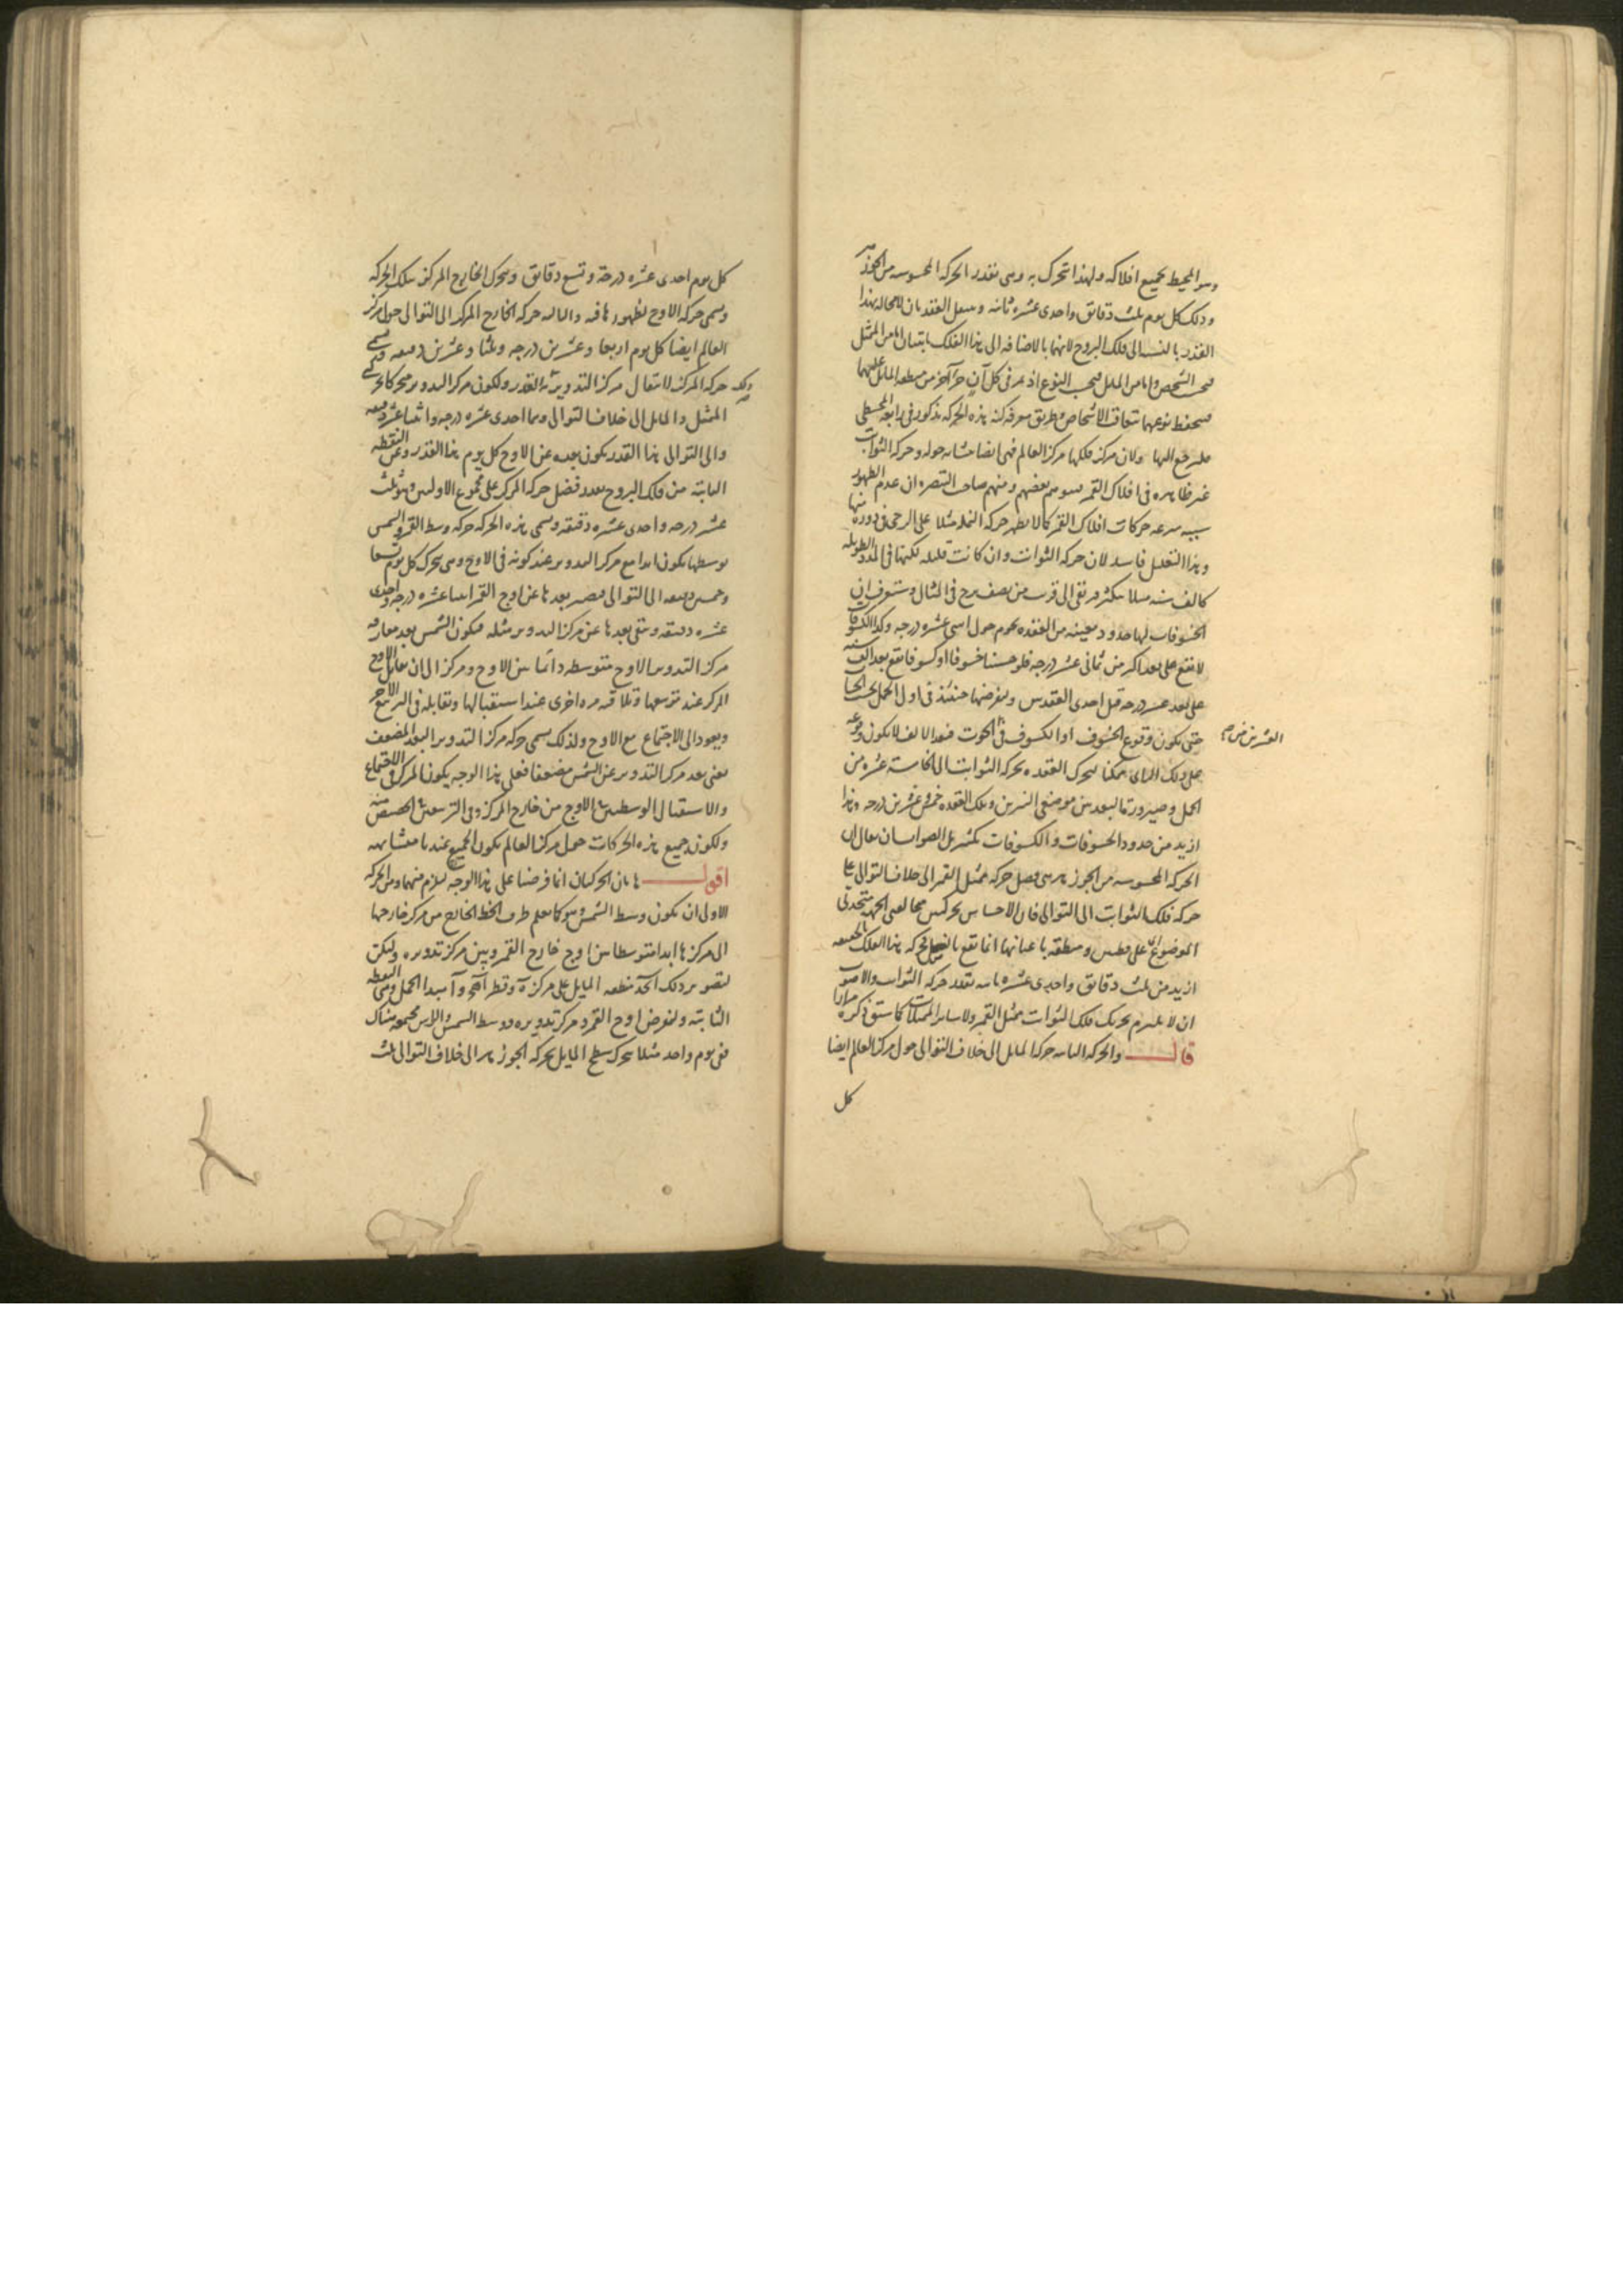 وهو المحيط بجميع افلاكه ولهذا تتحرك به وهى بقدر الحركه المحسوسه من الجوزهر
وذلك كل يوم ثلث دقائق واحدى عشره ثانيه وينتقل العقدتان لا محاله بهذا
القدر بالنسبه الى فلك البروج لانهما بالاضافه الى هذا الفلك ثابتتان اما من الممثل
فبحسب الشخص واما من المايل فبحسب النوع اذ يمر فى كل آن جزء آخر من منطقه المايل عليهما
فينحفظ نوعهما بتعاقب الاشخاص وطريق معرفه كنه هذه الحركه مذكور فى رابعه المجسطى
فليرجع اليها ولان مركز فلكها مركز العالم فهى ايضا متشابهه حوله وحركه الثوابت
غير ظاهره فى افلاك القمر فتوهم بعضهم ومنهم صاحب التبصره ان عدم الظهور
سببه سرعه حركات افلاك القمر كما لا يظهر حركه النمله مثلا على الرحى فى دوره منها
وهذا التعليل فاسد لان حركه الثوابت وان كانت قليله لكنها فى المدد الطويله
كالف سنه مثلا يكثر فيرتقى الى قرب من نصف برج فى المثال وستعرف ان
الخسوفات لها حدود معينه من العقده يحوم حول اثنى عشره درجه وكذا الكسوفات
لا تقع على بعد اكثر من ثمانى عشر درجه فلو حسبنا خسوفا او كسوفا يقع بعد الف سنه
على بعد عشر درجه قبل احدى العقدتين ولنفرضها حينئذ فى اول الحمل بحسب الحساب
حتى يكون وقوع الخسوف او الكسوف فى الحوت فبعد الالف لا يكون وقوعه
على ذلك الراى ممكنا لتحرك العقده بحركه الثوابت الى الخامسة عشره من
الحمل وصيرورة البعد بين موضعى النيرين وتلك العقده خمس وعشرين درجه وهذا
ازيد من حدود الخسوفات والكسوفات بكثير بل الصواب ان يقال ان
الحركه المحسوسه من الجوزهر هى فضل حركه ممثل القمر الى خلاف التوالى على
حركه فلك الثوابت الى التوالى فان الاحساس بحركتين مخالفتى الجهه متحدتى
الموضوع على قطبين ومنطقه باعيانها انما تقع بالفضل فحركه هذا الفلك بالحقيقه
ازيد من ثلث دقائق واحدى عشره ثانيه بقدر حركه الثوابت والاصوب
ان لا يلتزم بحريك فلك الثوابت ممثل القمر ولا ساير الممثلات كما سبق ذكره مرارا
قال والحركه الثانيه حركه المايل الى خلاف التوالى حول مركز العالم ايضا
كل
العشرين من
كل يوم احدى عشره درجة وتسع دقائق ويتحرك الخارج المركز بتلك الحركه
وتسمى حركه الاوج لظهورها فيه والثالثه حركه الخارج المركز الى التوالى حول مركز
العالم ايضا كل يوم اربعا وعشرين درجه وثلثا وعشرين دقيقه وتسمى
حركه المركز لانتقال مركز التدوير بهذا القدر ولكون مركز التدوير متحركا بحركتى
الممثل والمايل الى خلاف التوالى وهما احدى عشره درجه واثنتا عشره دقيقه
والى التوالى هذا القدر يكون بعده عن الاوج كل يوم هذا القدر وعن النقطه
الثابتة من فلك البروج بقدر فضل حركه المركز على مجموع الاوليين وهو ثلث
عشر درجه واحدى عشره دقيقه وتسمى هذه الحركه حركه وسط القمر والشمس
بوسطها يكون ابدا مع مركز التدوير عند كونه فى الاوج وهى تتحرك كل يوم تسعا
وخمسين دقيقه الى التوالى فيصير بعدها عن اوج القمر اثنتا عشره درجه واحدى
عشره دقيقه ويبقى بعدها عن مركز التدوير مثله فيكون الشمس بعد مفارقه
مركز التدوير الاوج متوسطه دائما بين الاوج ومركز الى ان يقابل الاوج
المركز عند تربيعها وتلاقيه مره اخرى عند استقبالها ويقابله فى التربيع الاخر
ويعود الى الاجتماع مع الاوج ولذلك يسمى حركه مركز التدوير البعد المضعف
يعنى بعد مركز التدوير عن الشمس مضعفا فعلى هذا الوجه يكون المركز فى الاجتماع
والاستقبال الوسطيين فى الاوج من خارج المركز وفى التربيعين فى الحضيض منه
ولكون جميع هذه الحركات حول مركز العالم يكون الجميع عنده متشابهه
اقول هاتان الحركتان انما فرضنا على هذا الوجه ليلزم منهما ومن الحركه
الاولى ان يكون وسط الشمس وهو كما تعلم طرف الخط الخارج من مركز خارجها
الى مركزها ابدا متوسطا بين اوج خارج القمر وبين مركز تدويره وليكن
لتصوير ذلك منطقه المايل على مركز ه وقطر وآ مبدا الحمل وهى النقطه
الثابته ولنفرض اوج القمر ومركز تدويره ووسط الشمس والراس مجتمعه هناك
ففى يوم واحد مثلا يتحرك سطح المايل بحركه الجوزهر الى خلاف التوالى ثلث